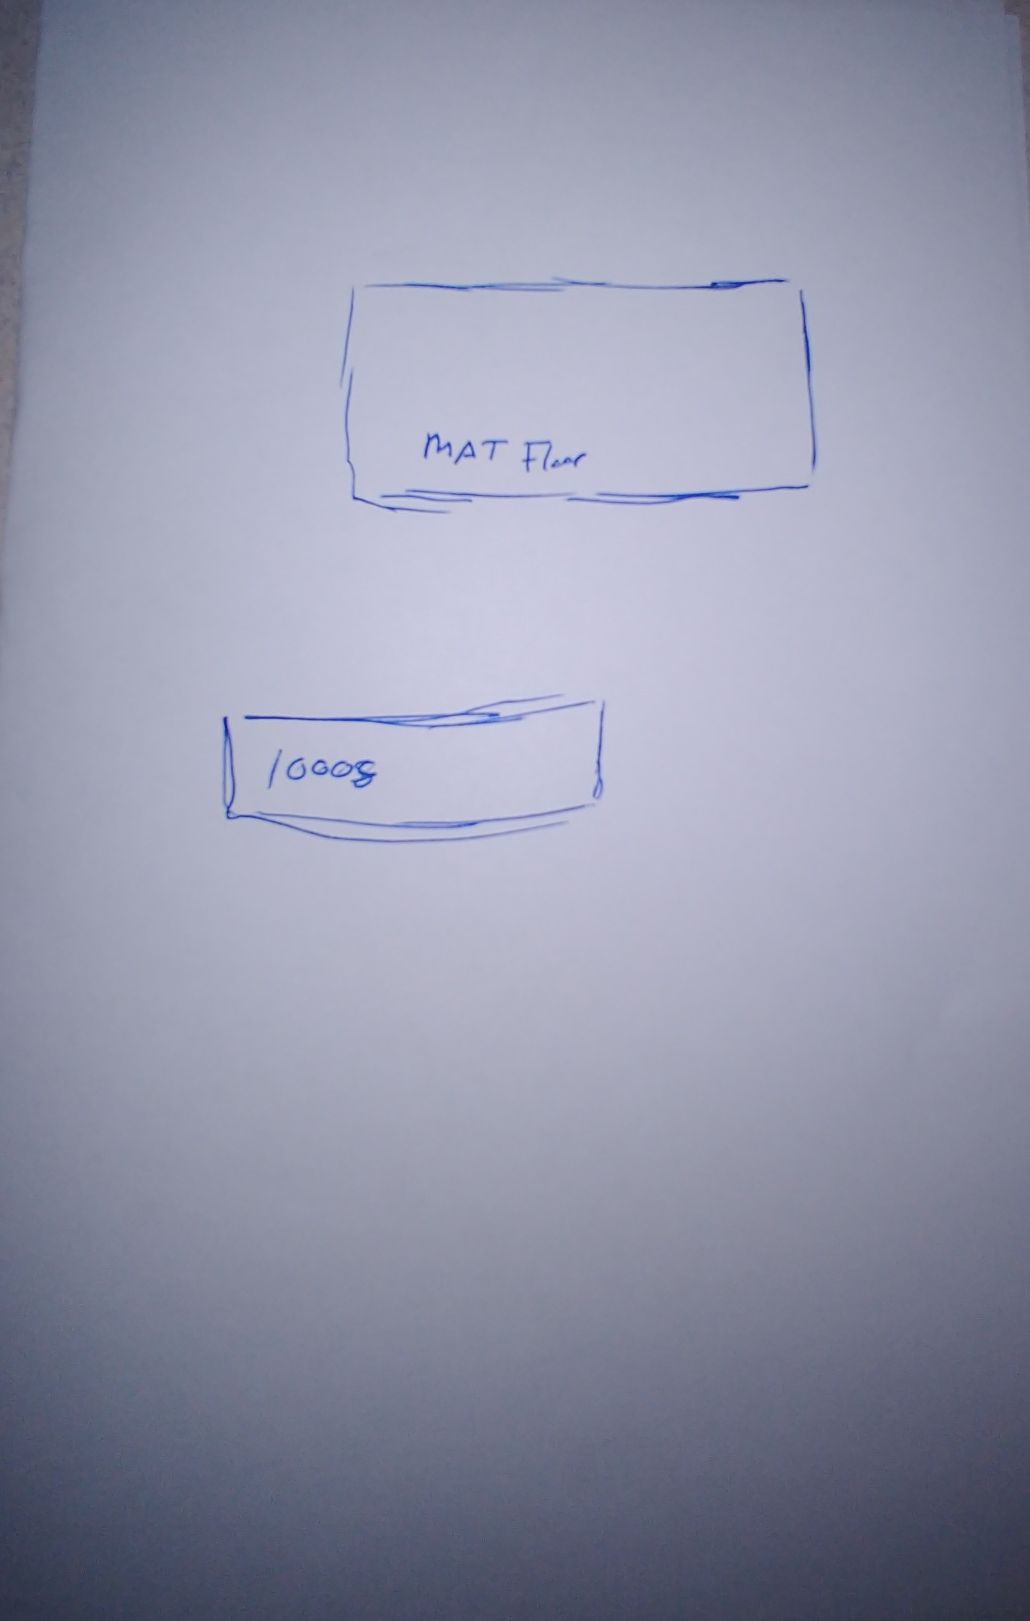 MAT Floor
1000g